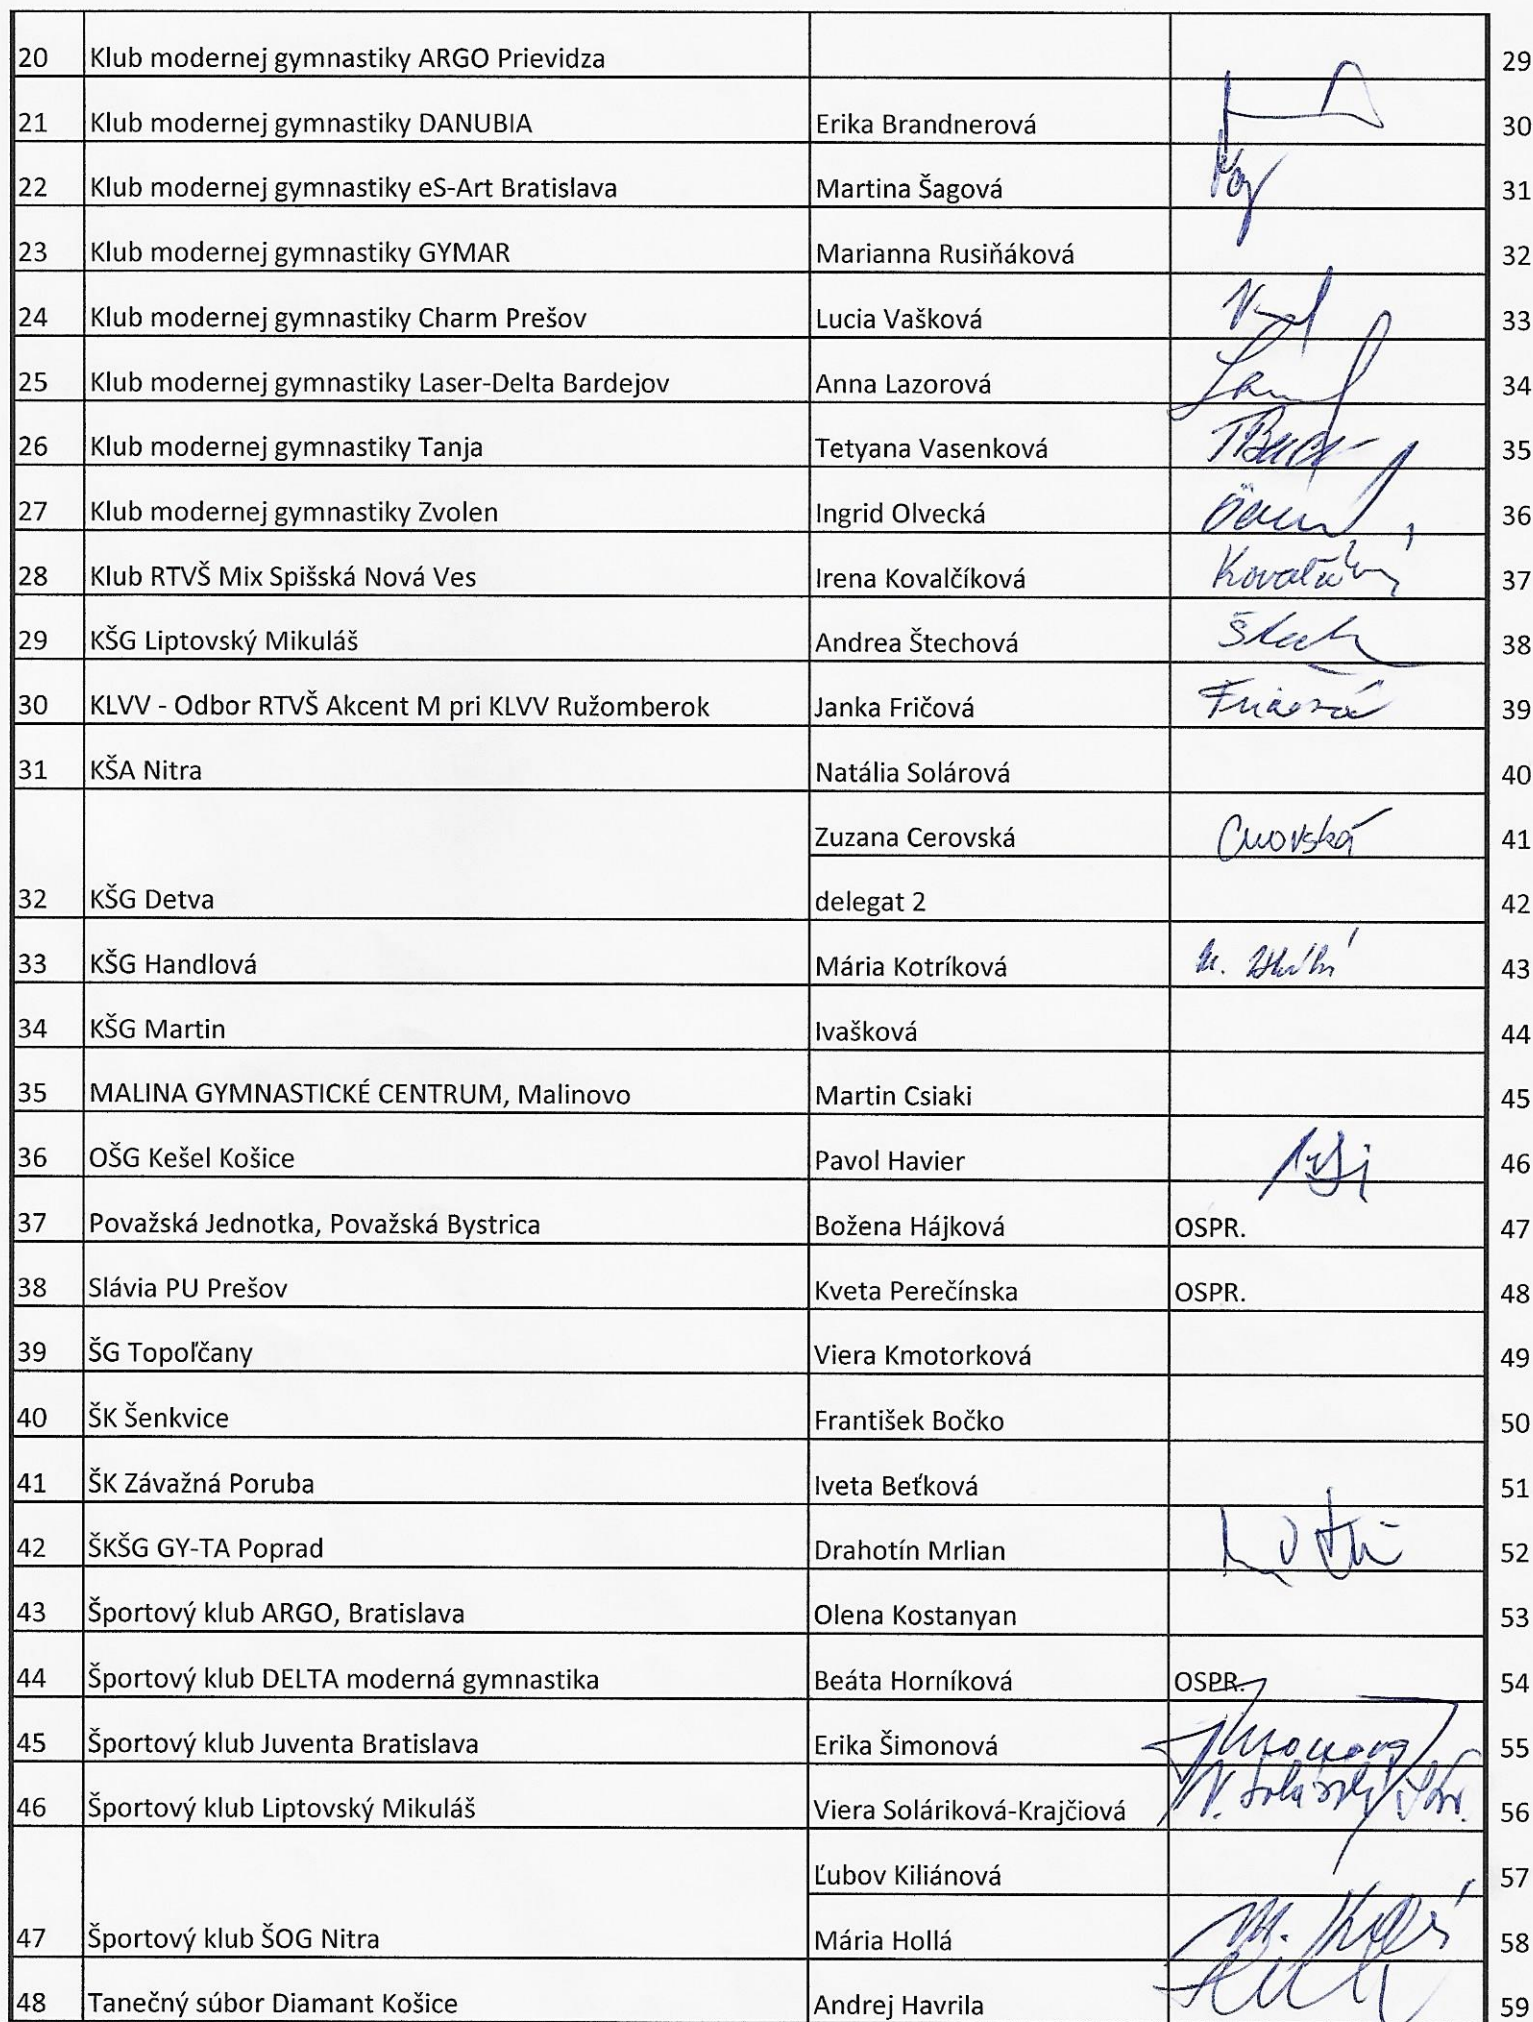 20 Klub modernej gymnastiky ARGO Prievidza 29
21 Klub modernej gymnastiky DANUBIA Erika Brandnerová 30
22 Klub modernej gymnastiky eS-Art Bratislava Martina Šagová 31
23 Klub modernej gymnastiky GYMAR Marianna Rusiňáková 32
24 Klub modernej gymnastiky Charm Prešov Lucia Vašková 33
25 Klub modernej gymnastiky Laser-Delta Bardejov Anna Lazorová 34
26 Klub modernej gymnastiky Tanja Tetyana Vasenková 35
27 Klub modernej gymnastiky Zvolen Ingrid Olvecká 36
28 Klub RTVŠ Mix Spišská Nová Ves Irena Kovalčíková 37
29 KŠG Liptovský Mikuláš Andrea Štechová 38
30 KLVV - Odbor RTVŠ Akcent M pri KLVV Ružomberok Janka Fričová 39
31 KŠA Nitra Natália Solárová 40
Zuzana Cerovská 41
32 KŠG Detva delegat 2 42
33 KŠG Handlová Mária Kotríková 43
34 KŠG Martin Ivašková 44
35 MALINA GYMNASTICKÉ CENTRUM, Malinovo Martin Csiaki 45
36 OŠG Kešel Košice Pavol Havier 46
37 Považská Jednotka, Považská Bystrica Božena Hájková OSPR. 47
38 Slávia PU Prešov Kveta Perečínska OSPR. 48
39 ŠG Topoľčany Viera Kmotorková 49
40 ŠK Šenkvice František Bočko 50
41 ŠK Závažná Poruba Iveta Beťková 51
42 ŠKŠG GY-TA Poprad Drahotín Mrlian 52
43 Športový klub ARGO, Bratislava Olena Kostanyan 53
44 Športový klub DELTA moderná gymnastika Beáta Horníková OSPR. 54
45 Športový klub Juventa Bratislava Erika Šimonová 55
46 Športový klub Liptovský Mikuláš Viera Soláriková-Krajčiová 56
Ľubov Kiliánová 57
47 Športový klub ŠOG Nitra Mária Hollá 58
48 Tanečný súbor Diamant Košice Andrej Havrila 59